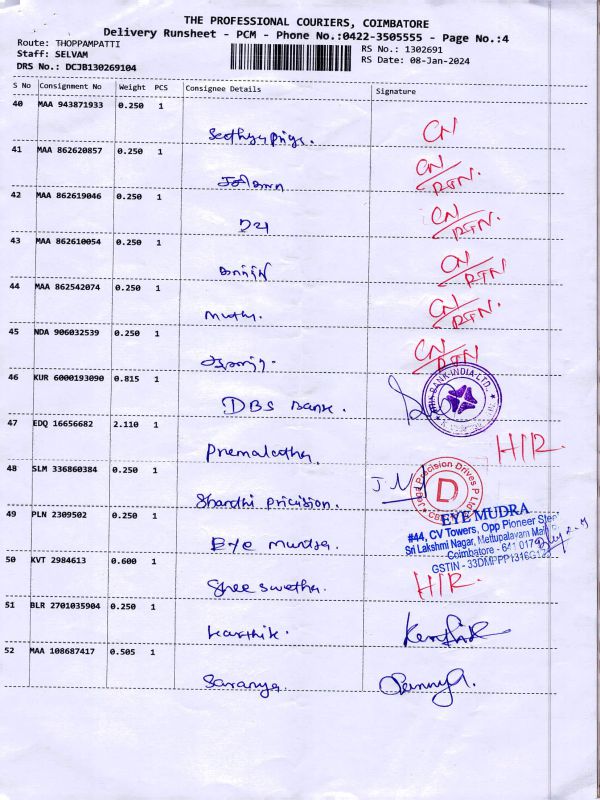 THE PROFESSIONAL COURIERS, COIMBATORE
Delivery Runsheet - PCM - Phone No.:0422-3505555 - Page No.:4
Route: THOPPAMPATTI
RS No.: 1302691
Staff: SELVAM
RS Date: 08-Jan-2024
DRS No.: DCJB130269104
S No Consignment No Weight PCS Consignee Details Signature
40 MAA 943871933 0.250 1
CN
41 MAA 862620857 0.250 1
CN/RTN
42 MAA 862619046 0.250 1
CN/RTN
43 MAA 862610054 0.250 1
CN/RTN
44 MAA 862542074 0.250 1
Muthu. CN/RTN
45 NDA 906032539 0.250 1
CN/RTN
46 KUR 6000193090 0.815 1
DBS Bank.
BANK INDIA LTD.
47 EDQ 16656682 2.110 1
Premalatha. H/R.
48 SLM 336860384 0.250 1
Precision Drives P Ltd
D
49 PLN 2309502 0.250 1
Eye mudra.
EYE MUDRA
#44, CV Towers, Opp Pioneer
Sri Lakshmi Nagar, Mettupalayam
Coimbatore - 641 017
GSTIN - 33DMPPP1316G1
50 KVT 2984613 0.600 1
Shree swetha. H/R.
51 BLR 2701035904 0.250 1
Karthik. Karthik
52 MAA 108687417 0.505 1
Saranya.